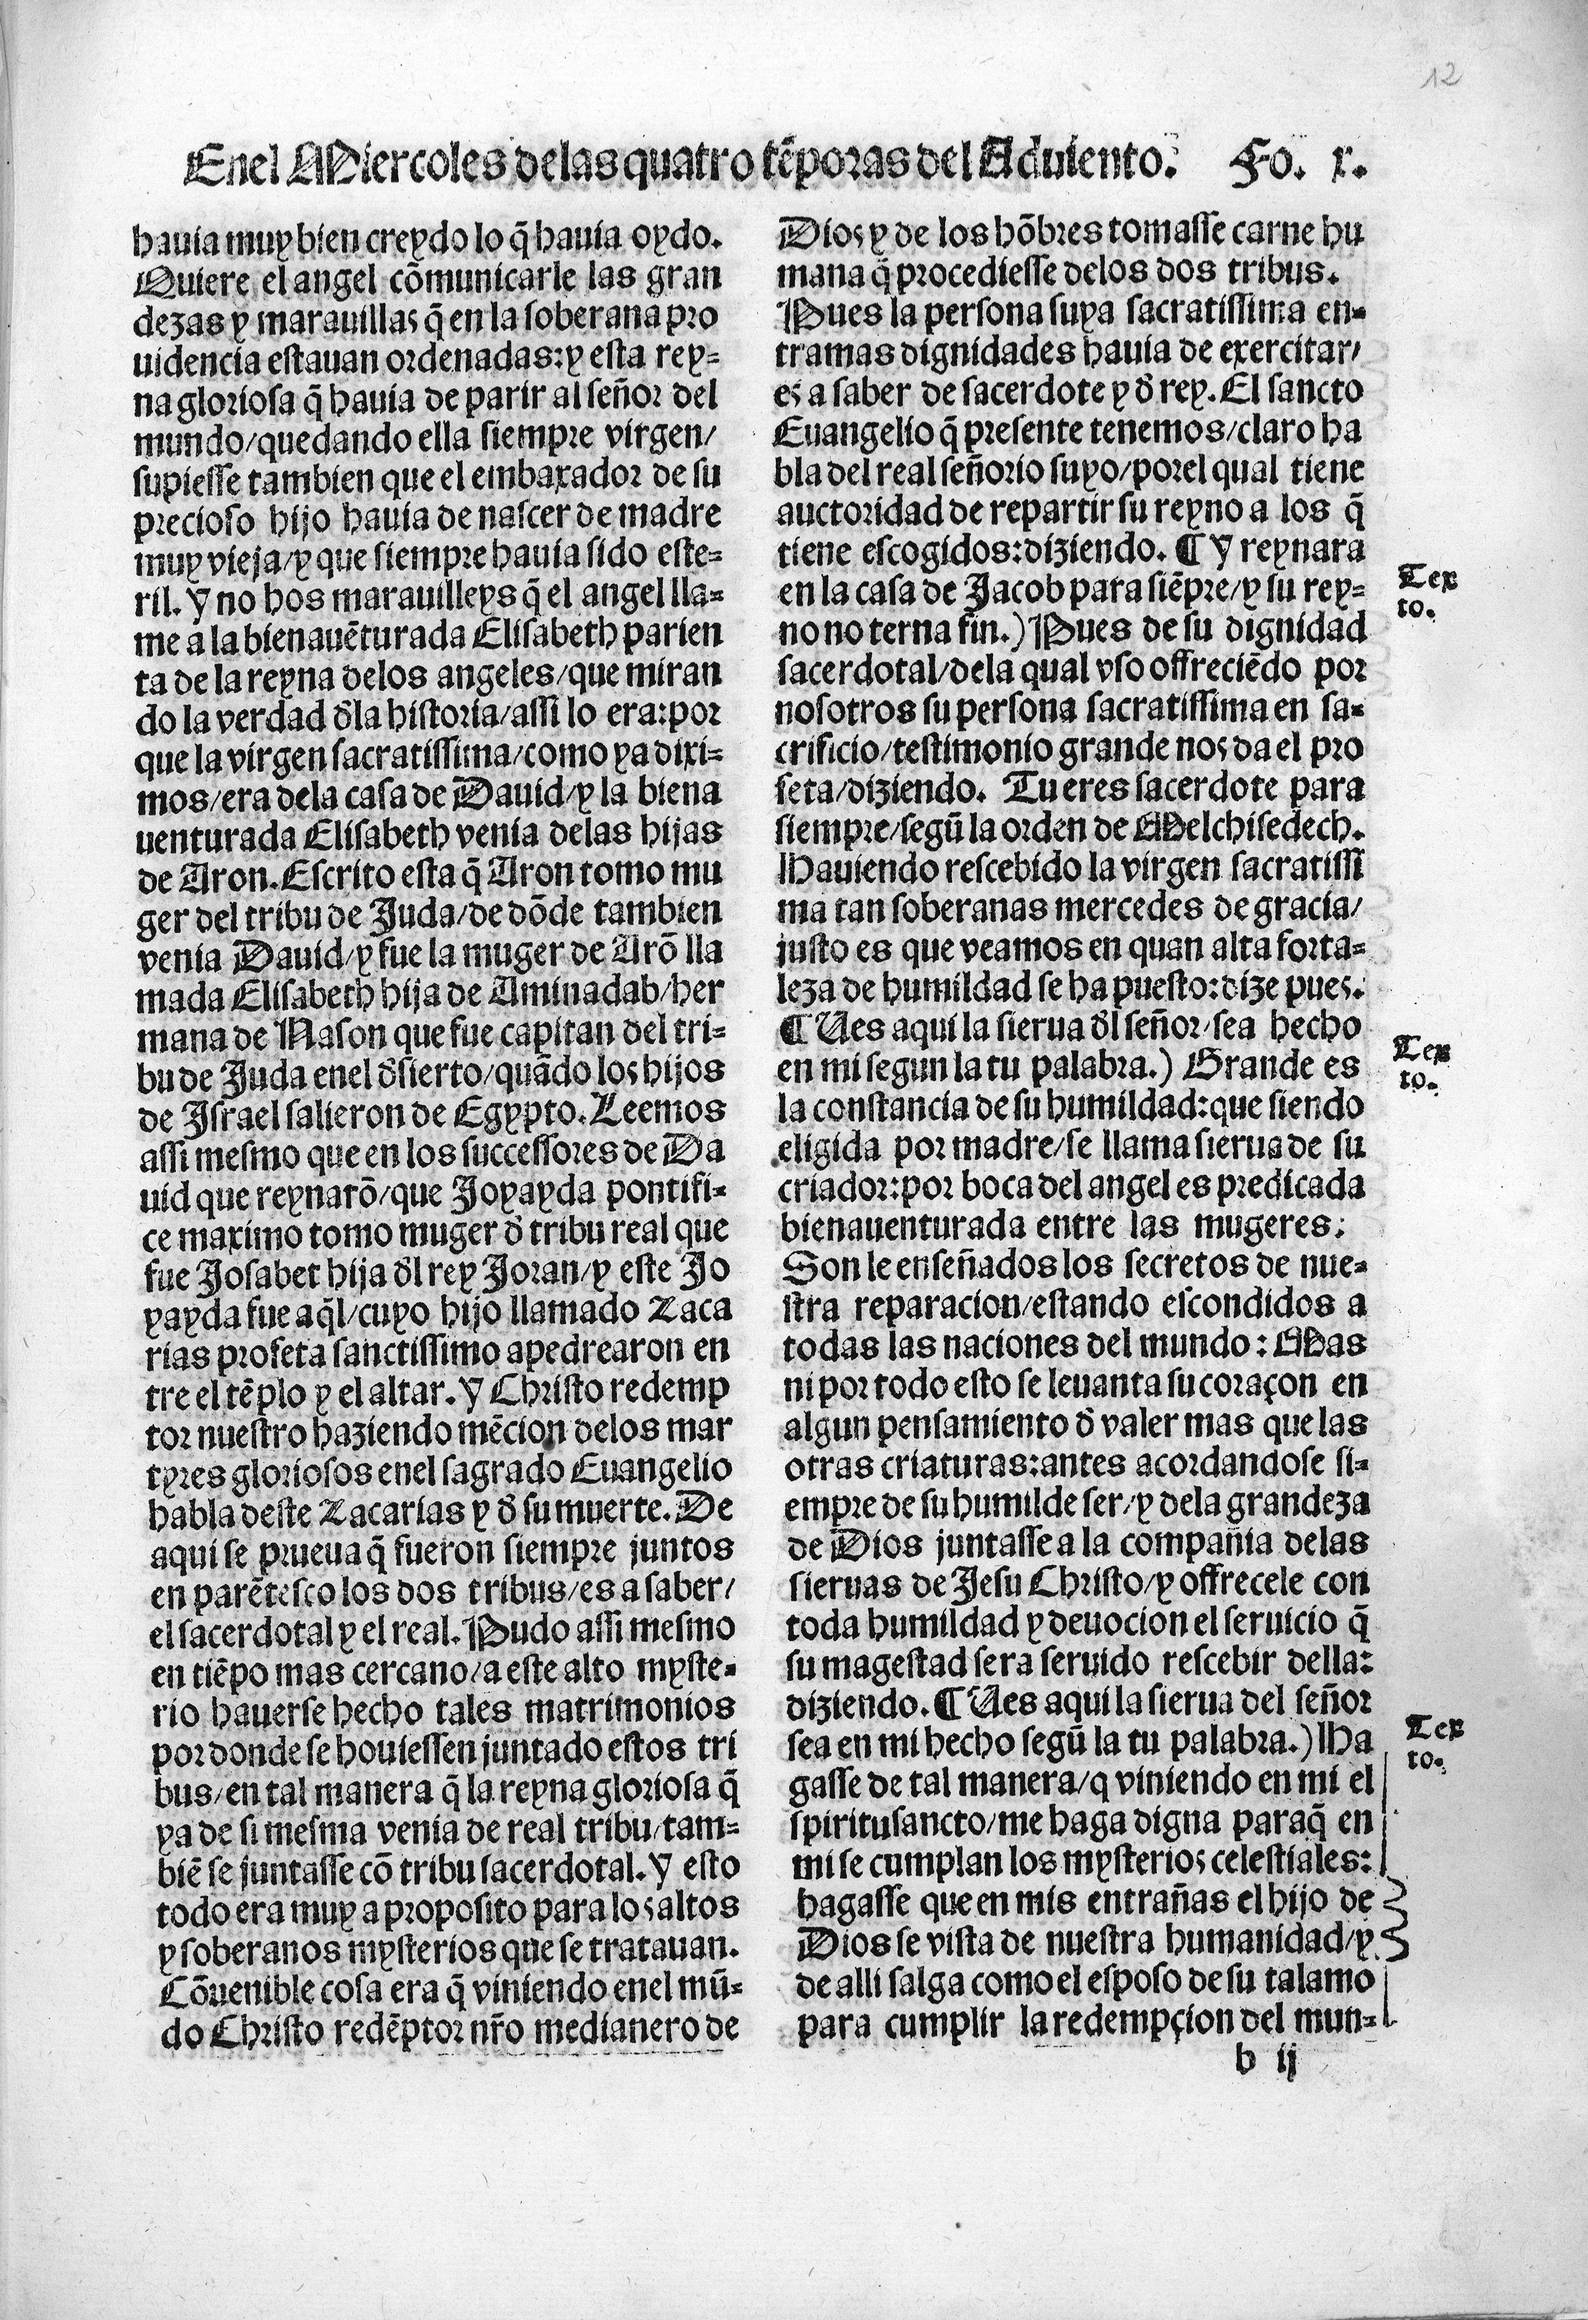 12
Enel Miercoles delas quatro tēporas del Aduiento. Fo. x.
hauia muy bien creydo lo q̄ hauia oydo.
Quiere el angel cōmunicarle las gran
dezas y marauillas q̄ en la soberana pro
uidencia estauan ordenadas: y esta rey-
na gloriosa q̄ hauia de parir al señor del
mundo/quedando ella siempre virgen/
supiesse tambien que el embaxador de su
precioso hijo hauia de nascer de madre
muy vieja/y que siempre hauia sido este-
ril. Y no hos marauilleys q̄ el angel lla-
me a la bienauēturada Elisabeth parien
ta de la reyna delos angeles/que miran
do la verdad d̄la historia/assi lo era: por
que la virgen sacratissima/como ya dixi-
mos/era dela casa de Dauid/y la biena
uenturada Elisabeth venia delas hijas
de Aron. Escrito esta q̄ Aron tomo mu
ger del tribu de Juda/de dōde tambien
venia Dauid/y fue la muger de Arō lla
mada Elisabeth hija de Aminadab/her
mana de Nason que fue capitan del tri-
bu de Juda enel d̄sierto/quādo los hijos
de Israel salieron de Egypto. Leemos
assi mesmo que en los successores de Da
uid que reynarō/que Joyayda pontifi-
ce maximo tomo muger d̄ tribu real que
fue Josabet hija d̄l rey Joran/y este Jo
yayda fue aq̄l/cuyo hijo llamado Zaca
rias profeta sanctissimo apedrearon en
tre el tēplo y el altar. Y Christo redemp
tor nuestro haziendo mēcion delos mar
tyres gloriosos enel sagrado Euangelio
habla deste Zacarias y d̄ su muerte. De
aqui se prueua q̄ fueron siempre juntos
en parētesco los dos tribus/es a saber/
el sacerdotal y el real. Pudo assi mesmo
en tiēpo mas cercano/a este alto myste-
rio hauerse hecho tales matrimonios
por donde se houiessen juntado estos tri
bus/en tal manera q̄ la reyna gloriosa q̄
ya de si mesma venia de real tribu/tam-
biē se juntasse cō tribu sacerdotal. Y esto
todo era muy a proposito para los altos
y soberanos mysterios que se tratauan.
Cōuenible cosa era q̄ viniendo enel mū-
do Christo redēptor nr̄o medianero de
Dios y de los hōbres tomasse carne hu
mana q̄ procediesse delos dos tribus.
Pues la persona suya sacratissima en-
tramas dignidades hauia de exercitar/
es a saber de sacerdote y d̄ rey. El sancto
Euangelio q̄ presente tenemos/claro ha
bla del real señorio suyo/por el qual tiene
auctoridad de repartir su reyno a los q̄
tiene escogidos: diziendo. ¶ Y reynara
en la casa de Jacob para siēpre/y su rey-
no no terna fin.) Pues de su dignidad
sacerdotal/dela qual vso offreciēdo por
nosotros su persona sacratissima en sa-
crificio/testimonio grande nos da el pro
feta/diziendo. Tu eres sacerdote para
siempre/segū la orden de Melchisedech.
Hauiendo rescebido la virgen sacratissi
ma tan soberanas mercedes de gracia/
justo es que veamos en quan alta forta-
leza de humildad se ha puesto: dize pues.
¶ Ues aqui la sierua d̄l señor/sea hecho
en mi segun la tu palabra.) Grande es
la constancia de su humildad: que siendo
eligida por madre/se llama sierua de su
criador: por boca del angel es predicada
bienauenturada entre las mugeres:
Son le enseñados los secretos de nue-
stra reparacion/estando escondidos a
todas las naciones del mundo: Mas
ni por todo esto se leuanta su coraçon en
algun pensamiento d̄ valer mas que las
otras criaturas: antes acordandose si-
empre de su humilde ser/y dela grandeza
de Dios juntasse a la compañia delas
sieruas de Jesu Christo/y offrecele con
toda humildad y deuocion el seruicio q̄
su magestad sera seruido rescebir della:
diziendo. ¶ Ues aqui la sierua del señor
sea en mi hecho segū la tu palabra.) Ha
gasse de tal manera/q viniendo en mi el
spiritusancto/me haga digna paraq̄ en
mi se cumplan los mysterios celestiales:
hagasse que en mis entrañas el hijo de
Dios se vista de nuestra humanidad/y
de alli salga como el esposo de su talamo
para cumplir la redempçion del mun-
b ij
Tex
to.
Tex
to.
Tex
to.